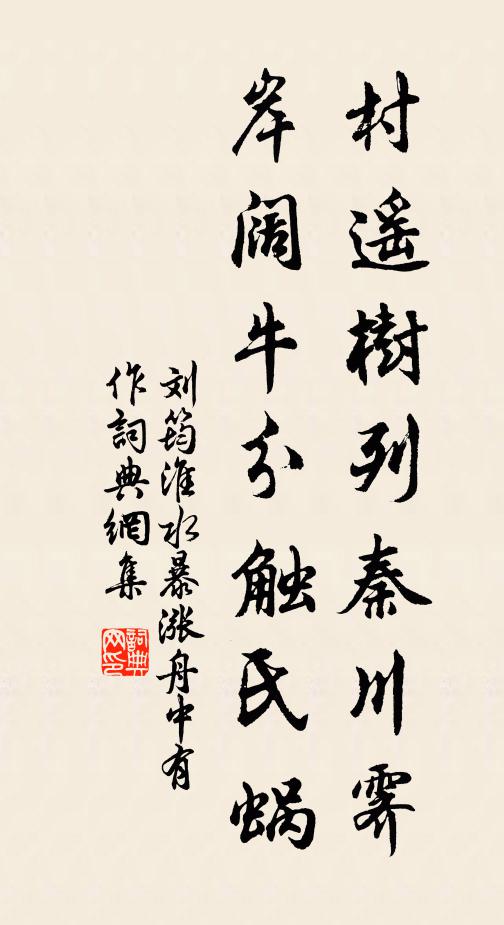 村遥樹列秦川霁
岸阔牛分触氏蜗
刘筠淮水暴涨舟中有
作詞典網集
詞典网印